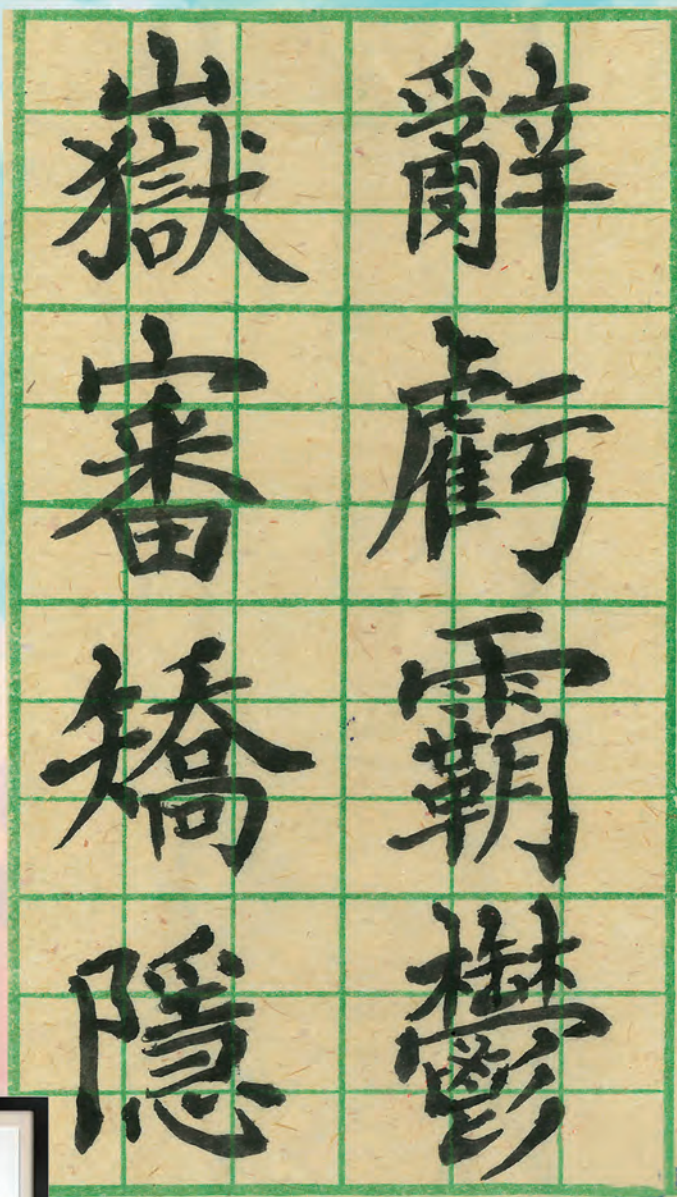 辭虧霸鬱
嶽審矯隱